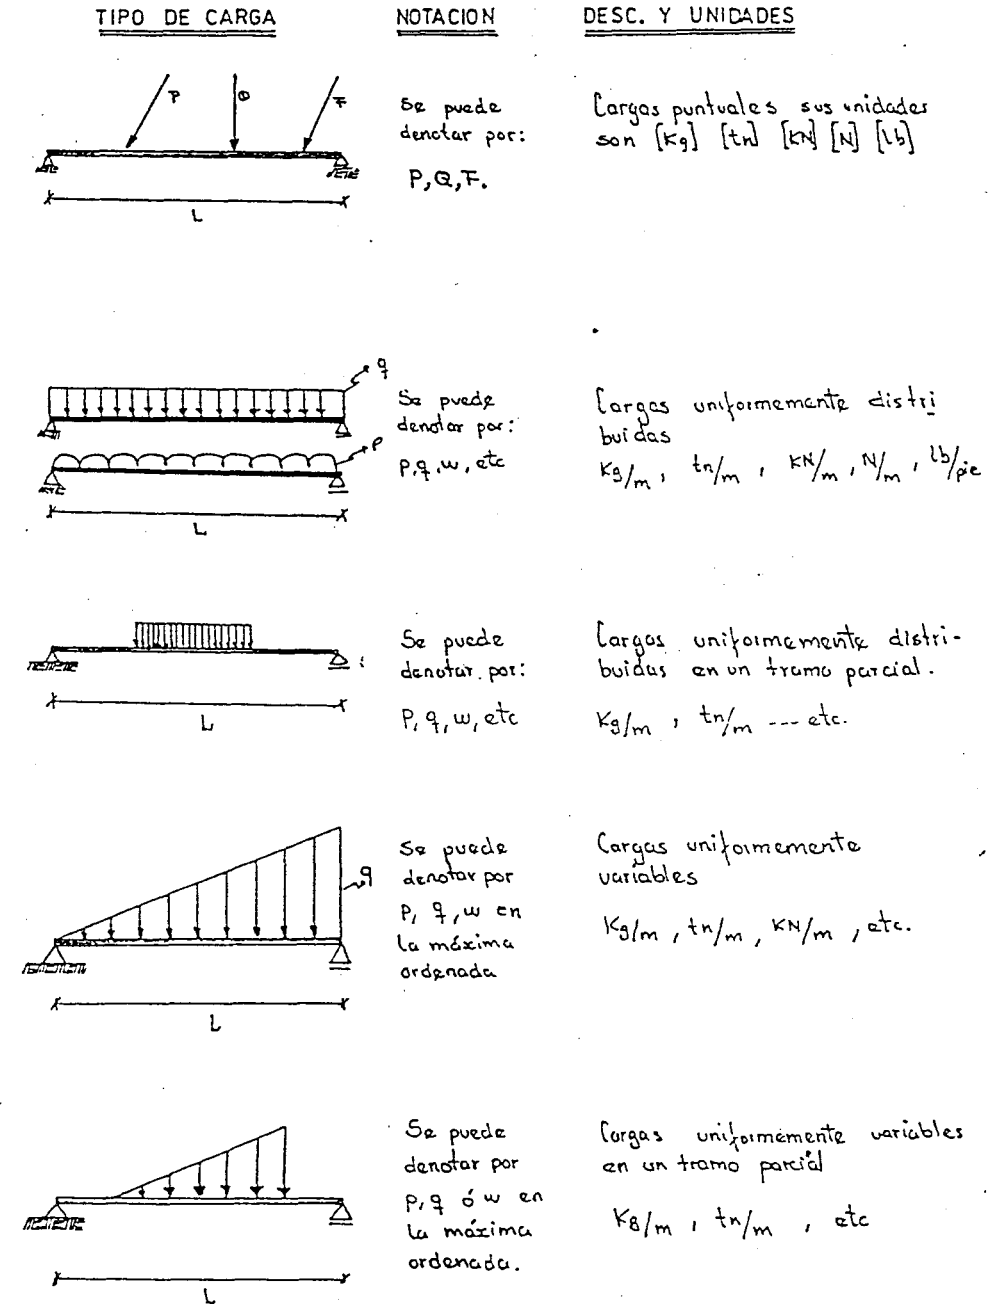 TIPO DE CARGA
NOTACION
DESC. Y UNIDADES
P
Q
F
L
Se puede
denotar por:
P, Q, F.
Cargas puntuales sus unidades
son [Kg] [tn] [kN] [N] [lb]
q
P
L
Se puede
denotar por:
p, q, w, etc
Cargas uniformemente distri
buidas
Kg/m, tn/m, kN/m, N/m, lb/pie
L
Se puede
denotar por:
P, q, w, etc
Cargas uniformemente distri-
buidas en un tramo parcial.
Kg/m, tn/m --- etc.
q
L
Se puede
denotar por
P, q, w en
la máxima
ordenada
Cargas uniformemente
variables
Kg/m, tn/m, KN/m, etc.
L
Se puede
denotar por
p, q ó w en
la máxima
ordenada.
Cargas uniformemente variables
en un tramo parcial
Kg/m, tn/m, etc